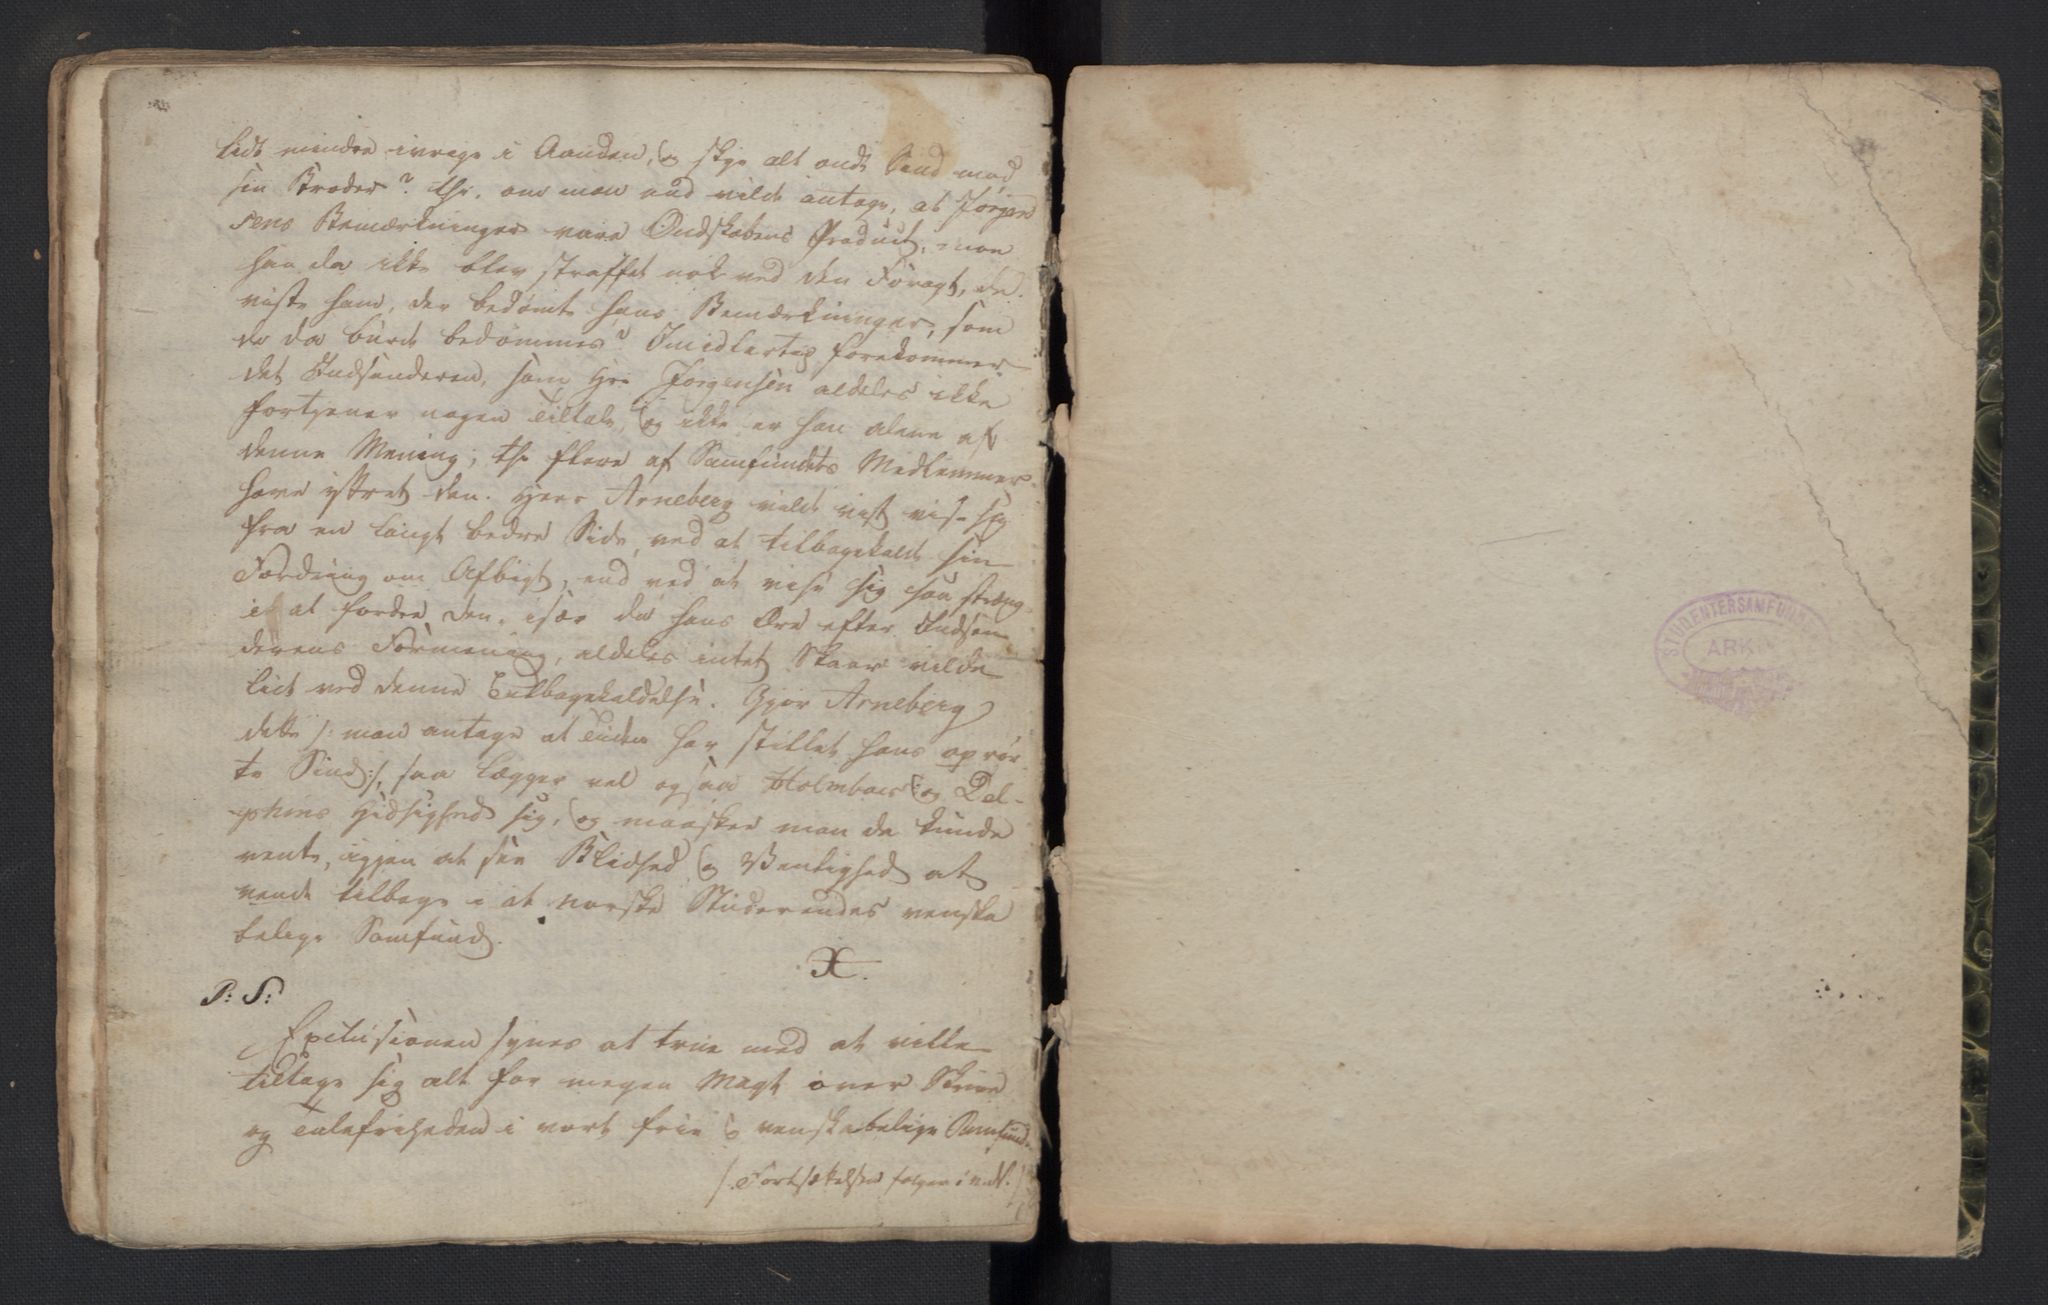 lidt mindre ivrige i Aanden, og skye alt ondt Sind mod
sin Broder? thi, om man end vilde antage, at Jørgen
sens Bemærkninger vare Ondskabens Product, mon
han da ikke blev straffet nok ved den Foragt, de
viste ham, der bedømte hans Bemærkninger, som
de da burde bedømmes? Imidlertid forekommer
det Indsenderen, som Hr. Jørgensen aldeles ikke
fortjener nogen Tiltale, og ikke er han alene af
denne Mening, thi flere af Samfundets Medlemmer
have yttret den. Herr Arneberg vilde vist vise sig
fra en langt bedre Side, ved at tilbagekalde sin
Fordring om Afbigt, end ved at vise sig saa stræng
i at fordre den, især da hans Ære efter Indsen
derens Formening, aldeles intet Skaar vilde
lidt ved denne Tilbagekaldelse. Gjør Arneberg
dette /: man antage at Tiden har stillet hans oprør-
te Sind :/, saa lægger vel ogsaa Holmboes og Del-
phins Hidsighed sig, og maaskee man da kunde
vente, igjen at see Blidhed og Venlighed at
vende tilbage i et norske Studerendes venska
belige Samfund.
X.
P: S:
Expeditionen synes at true med at ville
tiltage sig alt for megen Magt over Skrive
og Talefriheden i vort frie og venskabelige Samfund.
/: Fortsættelsen følger i næst. :/
STUDENTERSAMFUNDET
ARKIV